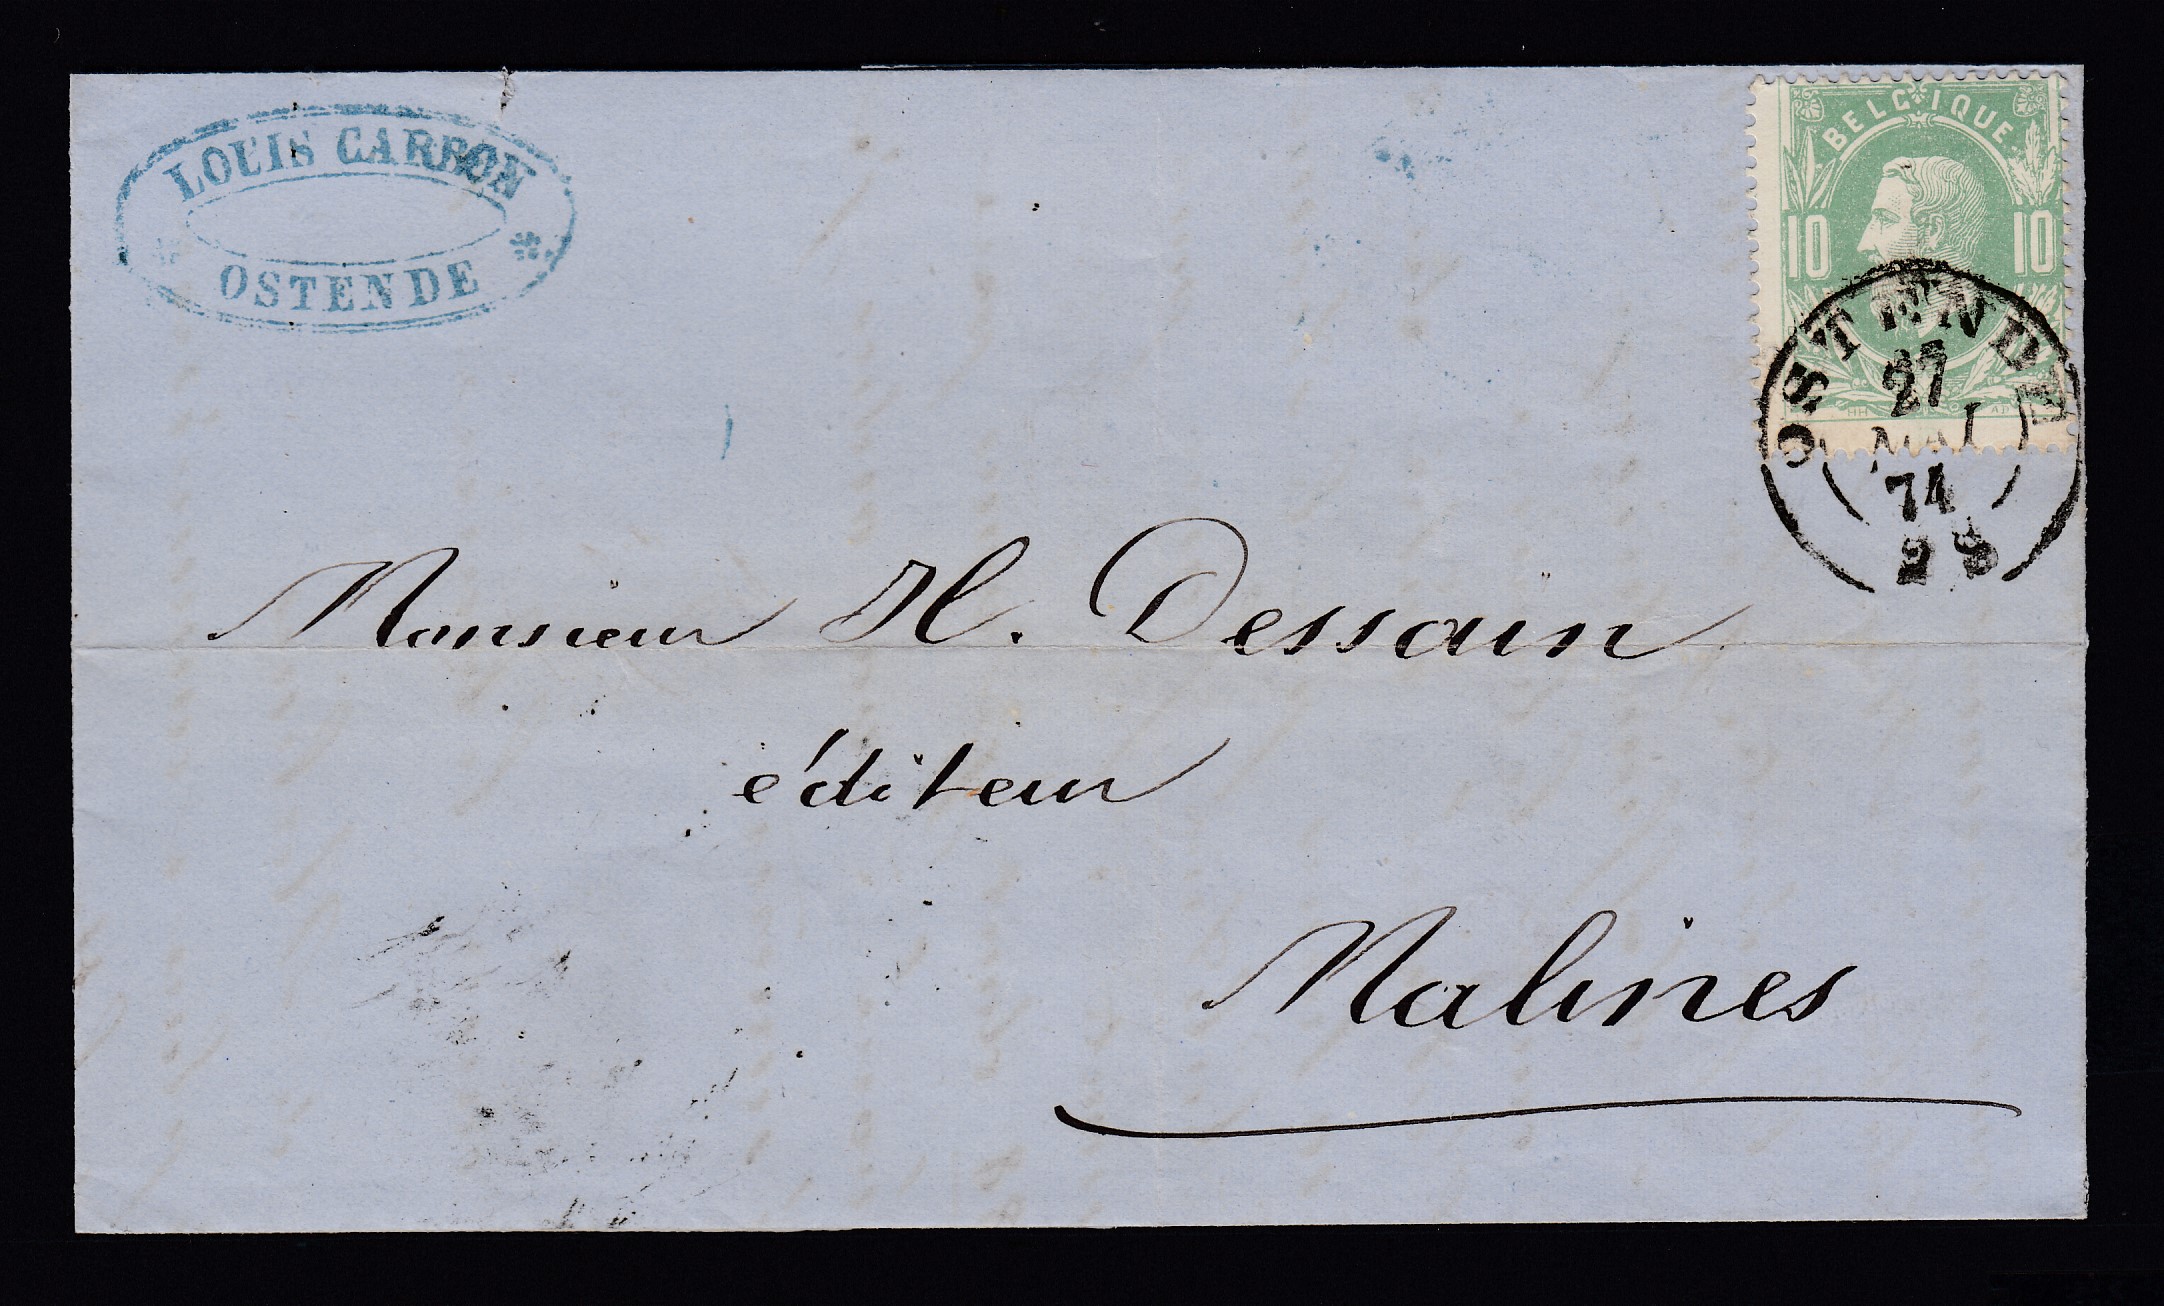 LOUIS CARBON
OSTENDE
BELGIQUE
10 10
OSTENDE
27
MAI
74
Monsieur H. Dessain
éditeur
Malines